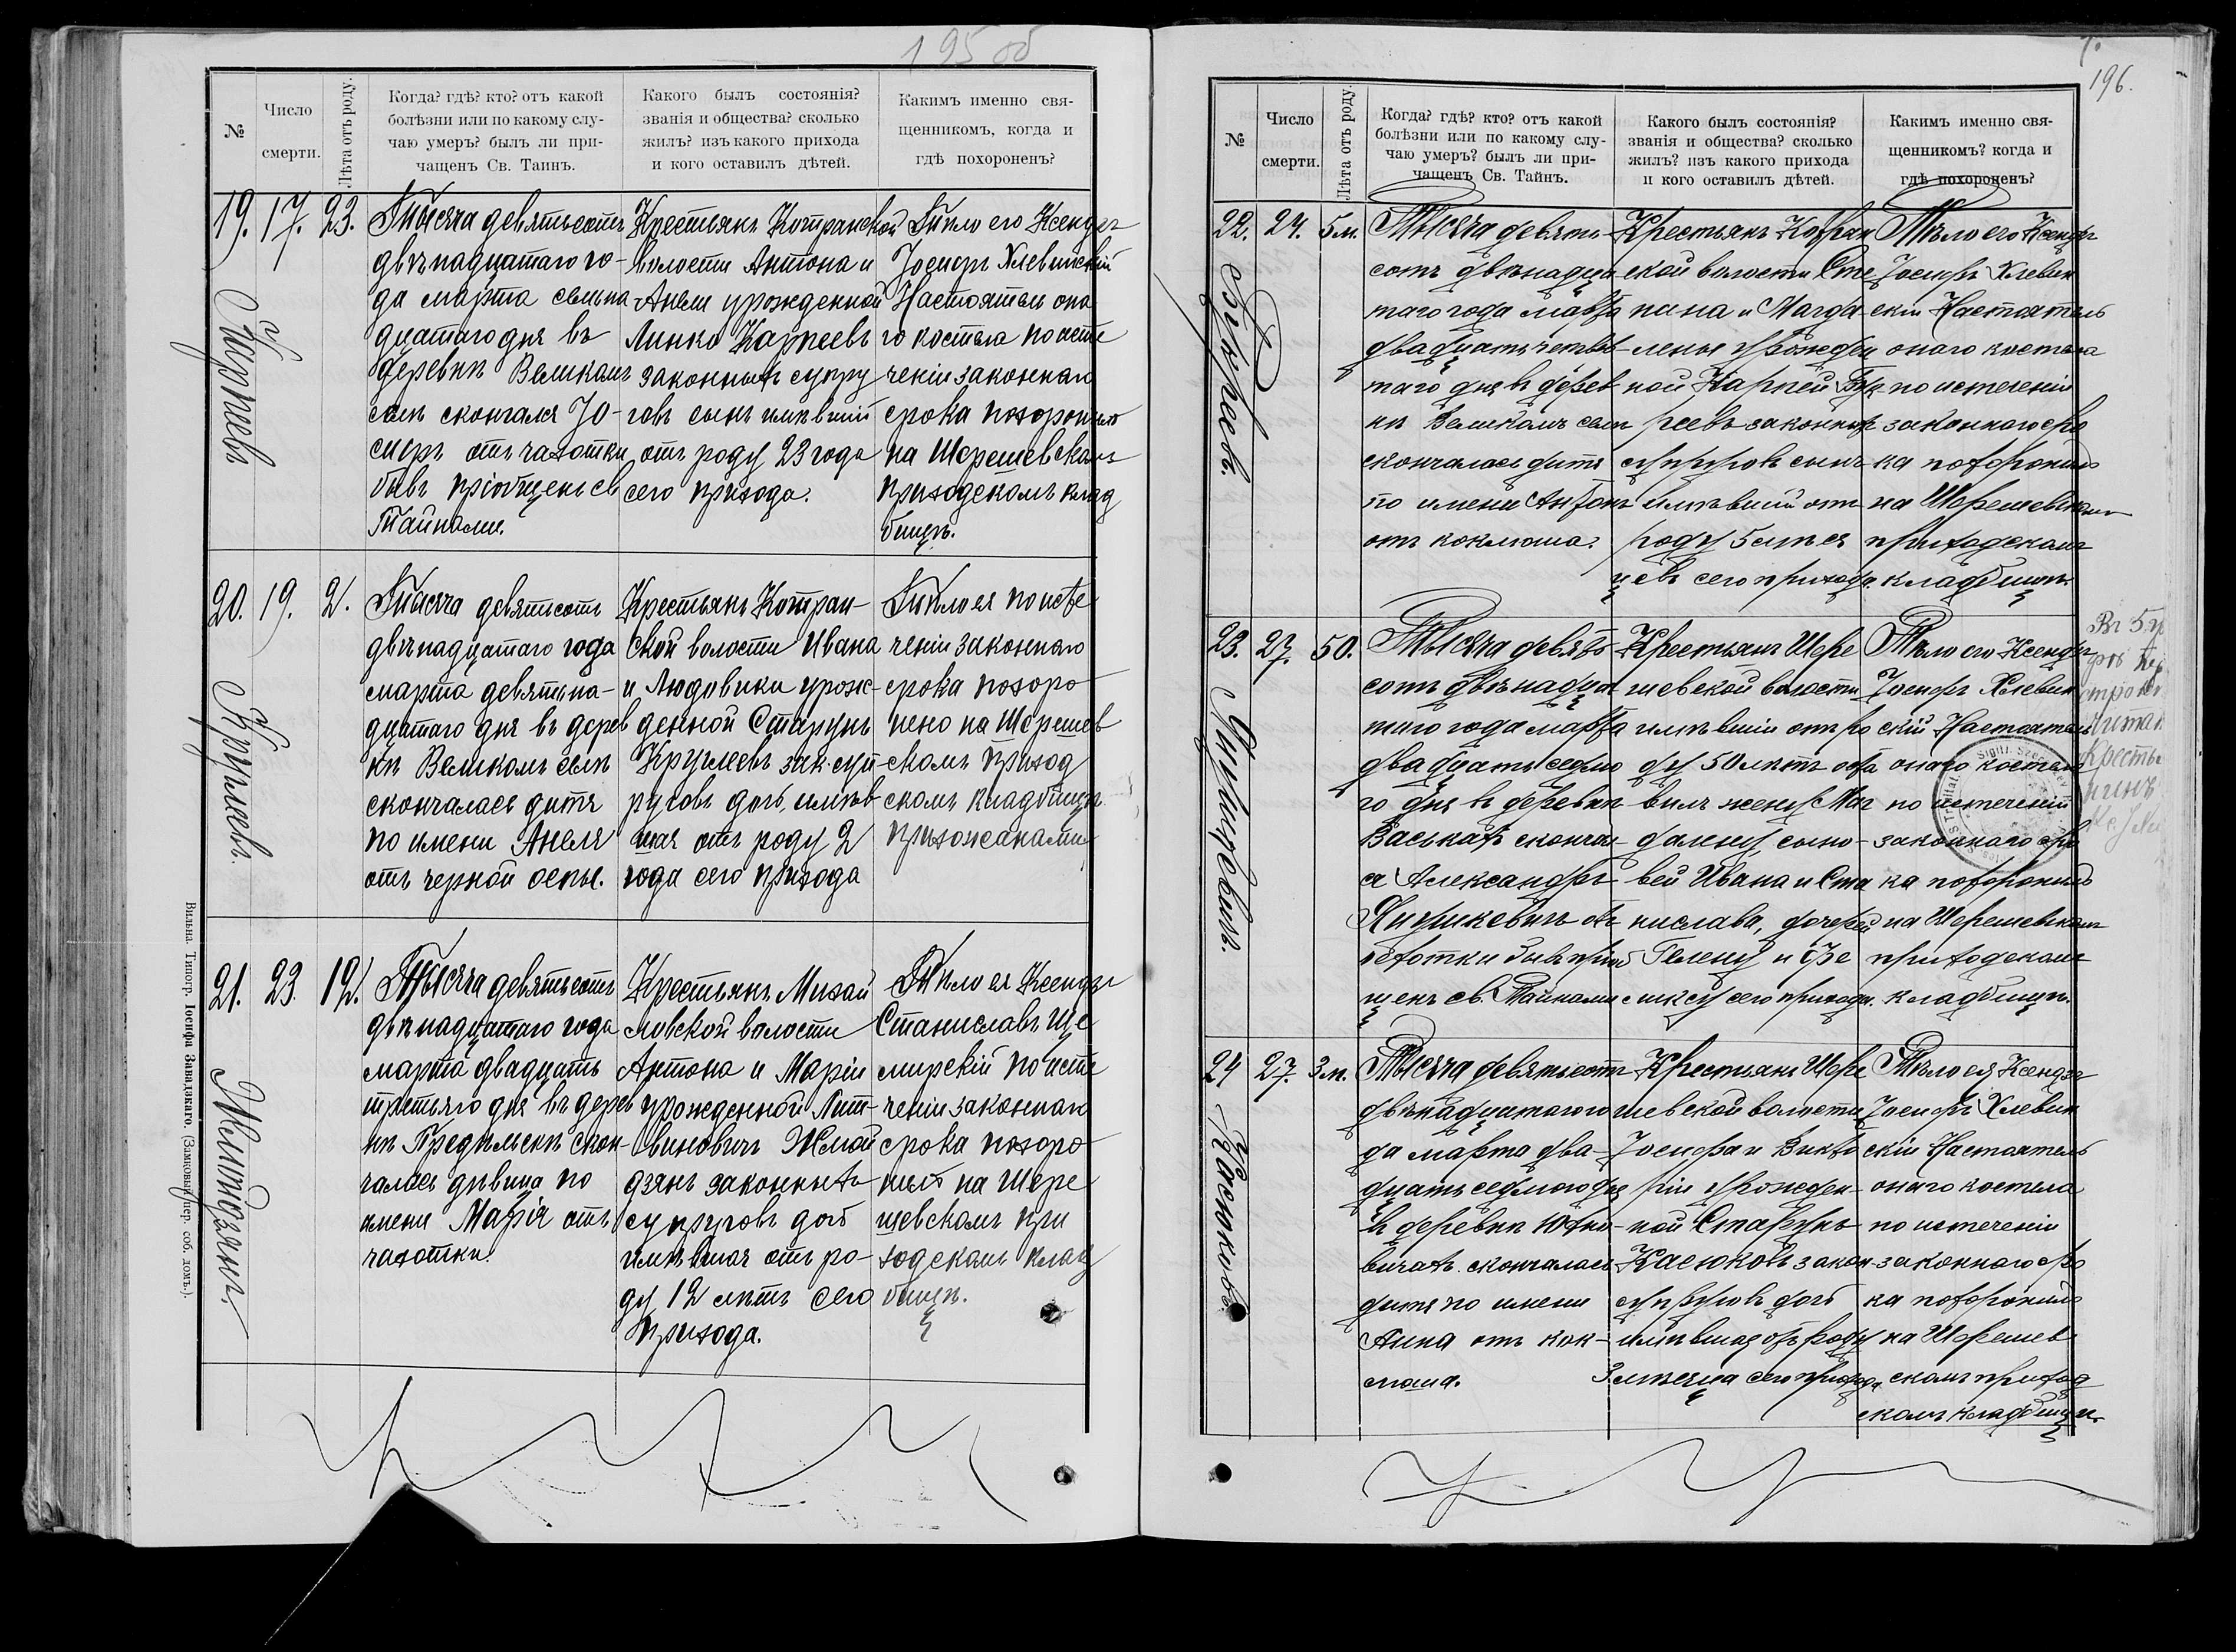 195 об
№
Число
смерти.
Лѣта отъ роду.
Когда? гдѣ? кто? отъ какой
болѣзни или по какому слу-
чаю умеръ? былъ ли при-
чащенъ Св. Таинъ.
Какого былъ состоянія?
званія и общества? сколько
жилъ? изъ какого прихода
и кого оставилъ дѣтей.
Какимъ именно свя-
щенникомъ, когда и
гдѣ похороненъ?
19. 17. 23.
Карпеевъ
Тысяча девятьсотъ
двѣнадцатаго го-
да марта семьна
дцатаго дня въ
деревнѣ Великомъ
селѣ скончался Іо-
сифъ отъ чахотки
бывъ пріобщенъ св
Тайнами.
Крестьянъ Котранской
волости Антона и
Анели урожденной
Линко Карпеевъ
законныхъ супру
говъ сынъ имѣвшій
отъ роду 23 года
сего прихода.
Тѣло его Ксендзъ
Іосифъ Хлевинскій
Настоятель она
го костела по исте
ченіи законнаго
срока похоронилъ
на Шерешевскомъ
приходскомъ клад
бищѣ.
20. 19. 2.
Круглевъ.
Тысяча девятьсотъ
двѣнадцатаго года
марта девятьна-
дцатаго дня въ дерев
нѣ Великомъ селѣ
скончалась дитя
по имени Анеля
отъ черной оспы.
Крестьянъ Котран-
ской волости Ивана
и Людовики урож-
денной Старунъ
Круглевъ зак. суп-
руговъ дочь, имѣв
шая отъ роду 2
года сего прихода
Тѣло ея по исте
ченіи законнаго
срока похоро
нено на Шерешев
скомъ приход
скомъ кладбищѣ
прихожанами
21. 23. 12.
Жмойдзянъ.
Тысяча девятьсотъ
двѣнадцатаго года
марта двадцать
третьяго дня въ дерев
нѣ Предѣльскъ скон-
чалась дѣвица по
имени Марія отъ
чахотки.
Крестьянъ Михай
ловской волости
Антона и Маріи
урожденной Лит-
виновичъ Жмой
дзянъ законныхъ
супруговъ дочь
имѣвшая отъ ро-
ду 12 лѣтъ сего
прихода.
Тѣло ея Ксендзъ
Станиславъ Ще
мирскій по исте
ченіи законнаго
срока похоро
нилъ на Шере
шевскомъ при
ходскомъ клад
бищѣ.
Вильна. Типогр. Іосифа Завадзкаго. (Замковый пер. соб. домъ.).
196.
№
Число
смерти.
Лѣта отъ роду.
Когда? гдѣ? кто? отъ какой
болѣзни или по какому слу-
чаю умеръ? былъ ли при-
чащенъ Св. Тайнъ.
Какого былъ состоянія?
званія и общества? сколько
жилъ? изъ какого прихода
и кого оставилъ дѣтей.
Какимъ именно свя-
щенникомъ? когда и
гдѣ похороненъ?
22. 24. 5 м.
Тысяча девять-
сотъ двѣнадца
таго года марта
двадцать четвер
таго дня въ дерев
нѣ Великомъ селѣ
скончалась дитя
по имени Антонъ
отъ коклюша.
Крестьянъ Котран
ской волости Сте
пана и Магда
лены урожден
ной Карпей
реевъ законныхъ
супруговъ сынъ
имѣвшій отъ
роду 5 мѣся
цевъ сего прихода.
Тѣло его Ксендзъ
Іосифъ Хлевин
скій Настоятель
онаго костела
по истеченіи
законнаго сро
ка похоронилъ
на Шерешевскомъ
приходскомъ
кладбищѣ.
23. 27. 50.
Тысяча девять
сотъ двѣнадца
таго года марта
двадцать седьмо
го дня въ деревнѣ
Васькахъ сконча
ся Александръ
отъ ча
хотки бывъ пріоб
щенъ св. Тайнами
Крестьянъ Шере
шевской волости
имѣвшій отъ ро
ду 50 лѣтъ оста
вилъ жену Маг
далену, сыно-
вей Ивана и Ста
нислава, дочерей
Гелену и Фе
ликсу сего прихода.
Тѣло его Ксендзъ
Іосифъ Хлевин
скій Настоятель
онаго костела
по истеченіи
законнаго сро
ка похоронилъ
на Шерешевскомъ
приходскомъ
кладбищѣ.
24 27. 3 м.
Касюковъ
Тысяча девятьсотъ
двѣнадцатаго го
да марта два-
дцать седьмого дня
въ деревнѣ Юхно-
вичахъ скончалась
дитя по имени
Анна отъ кок-
люша.
Крестьянъ Шере
шевской волости
Іосифа и Викто
ріи урожден-
ной Старунъ
Касюковъ закон-
супруговъ дочь
имѣвшая отъ роду
3 мѣсяца сего прихода
Тѣло ея Ксендзъ
Іосифъ Хлевин
скій Настоятель
онаго костела
по истеченіи
законнаго сро
ка похоронилъ
на Шерешев
скомъ приход
скомъ кладбищѣ.